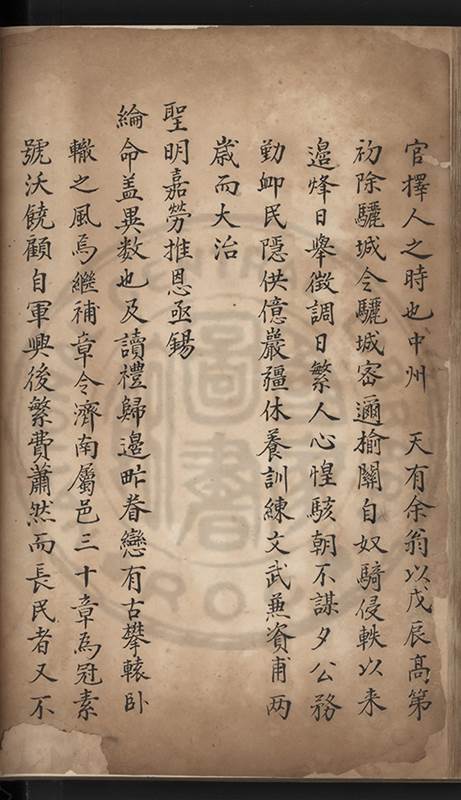 官擇人之時也中州　天有余翁以戊辰髙第
初除驪城令驪城密邇揄關自奴騎侵軼以来
邉烽日舉徴調日繁人心惶駭朝不謀夕公務
勤卹民隱供億嚴疆休養訓練文武兼資甫两
歳而大治
聖明嘉勞推恩亟錫
綸命盖異数也及讀禮歸邉甿眷戀有古攀轅卧
轍之風焉繼補章令濟南屬邑三十章為冠素
號沃饒顧自軍興後繁費蕭然而長民者又不